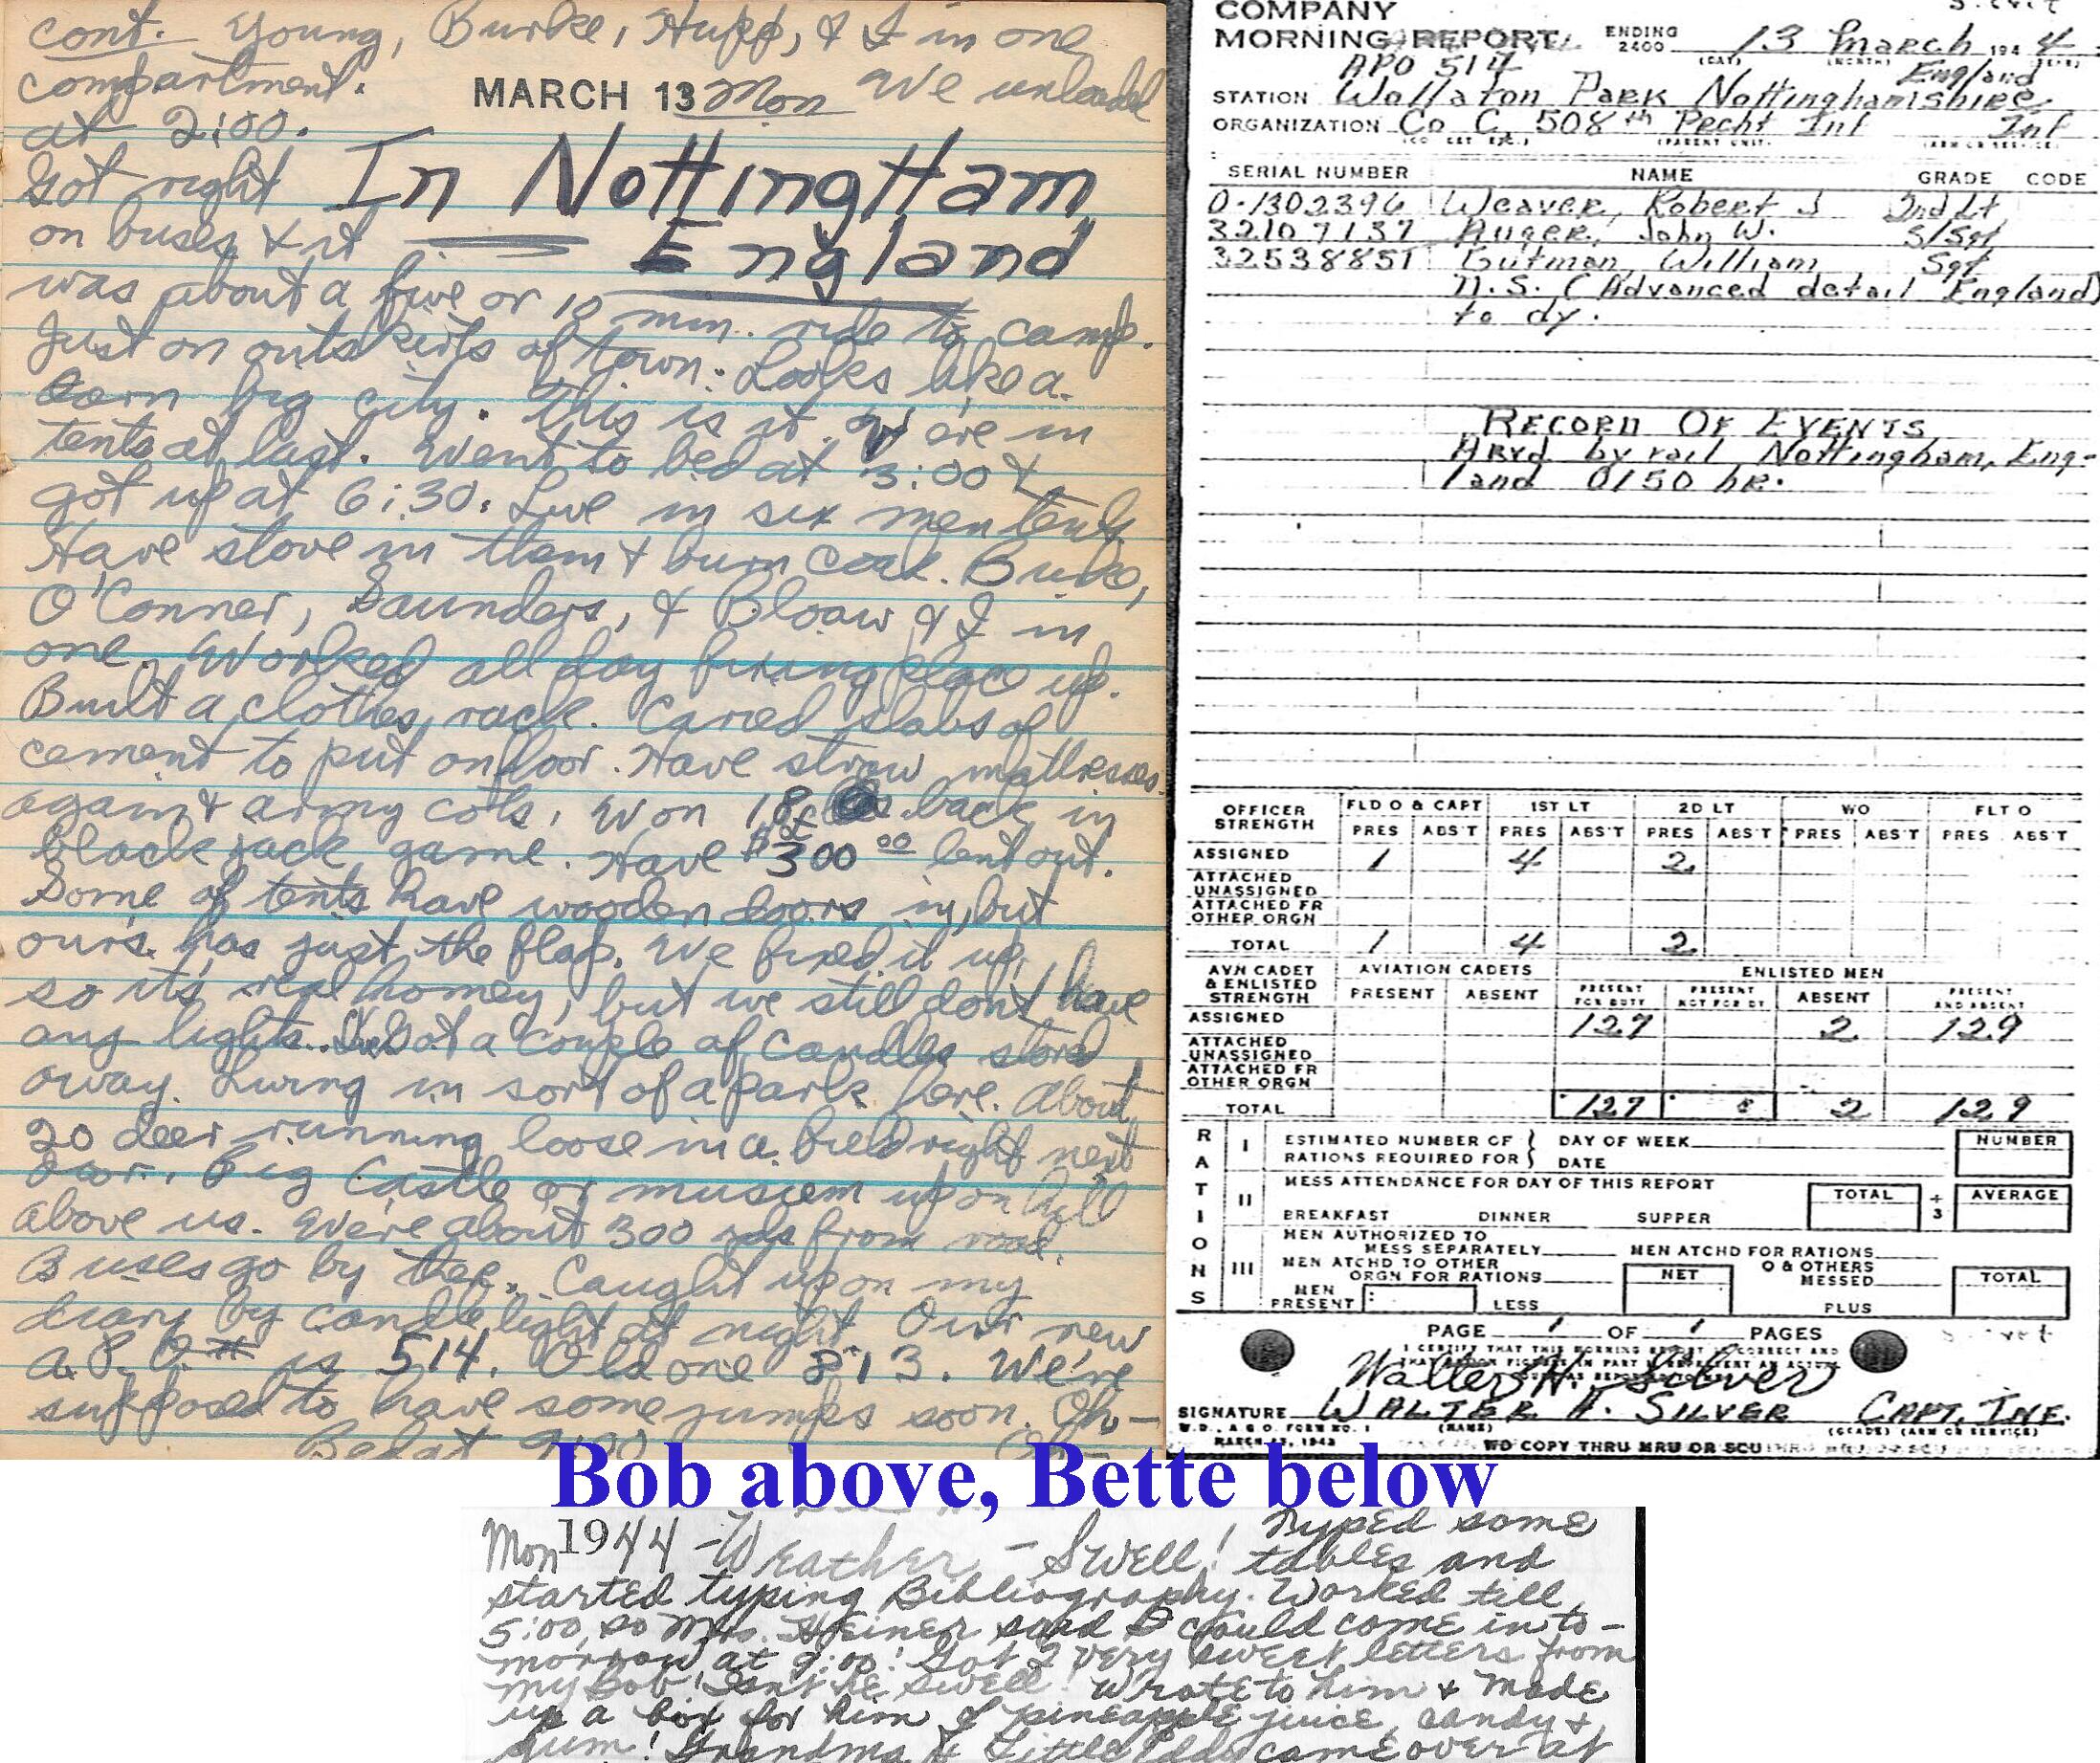 cont. Young, Burke, Hupp, & I in one
compartment.
MARCH 13 Mon We unloaded
at 2:00.
Got right
In Nottingham
England
on buses & it
was about a five or 10 min. ride to camp.
Just on outskirts of town. Looks like a
darn big city. This is it. We're in
tents at last. Went to bed at 3:00 &
got up at 6:30. Live in six men tents.
Have stove in them & burn coal. Burke,
O'Conner, Saunders, & Bloaw & I in
one. Worked all day fixing place up.
Built a clothes rack. Caried slabs of
cement to put on floor. Have straw mattresses
again & army cots. Won 18 £ back in
black jack game. Have $300 00 lent out.
Some of tents have wooden doors in, but
ours has just the flap. We fixed it up,
so it's real homey, but we still don't have
any lights. Got a couple of candles stored
away. Living in sort of a park here. About
20 deer running loose in a field right next
door. Big Castle or musiem up on hill
above us. We're about 300 yds from road.
Buses go by there. Caught up on my
diary by candle light at night. Our new
A.P.O. # is 514. Old one 813. We're
supposed to have some jumps soon. Oh-
Bed at 9:00 Oh-
COMPANY
MORNING REPORT ENDING 2400 13 March 1944
(DAY) (MONTH) (YEAR)
APO 514 England
STATION Wollaton Park Nottinghamshire
ORGANIZATION Co C, 508th Pecht Inf Inf
SERIAL NUMBER NAME GRADE CODE
O-1302396 Weaver, Robert J 2nd Lt
32107137 Auger, John W. S/Sgt
32538851 Gutman, William Sgt
D.S. (Advanced detail England)
to dy.
RECORD OF EVENTS
Arvd by rail Nottingham, Eng-
land 0150 hr.
OFFICER STRENGTH FLD O & CAPT 1ST LT 2D LT WO FLT O
PRES ABS'T PRES ABS'T PRES ABS'T PRES ABS'T PRES ABS'T
ASSIGNED 1 4 2
ATTACHED UNASSIGNED
ATTACHED FR OTHER ORGN
TOTAL 1 4 2
AVN CADET & ENLISTED STRENGTH AVIATION CADETS ENLISTED MEN
PRESENT ABSENT PRESENT FOR DUTY PRESENT NOT FOR DY ABSENT PRESENT AND ABSENT
ASSIGNED 127 2 129
ATTACHED UNASSIGNED
ATTACHED FR OTHER ORGN
TOTAL 127 2 129
RATIONS
I ESTIMATED NUMBER OF RATIONS REQUIRED FOR DAY OF WEEK DATE NUMBER
II MESS ATTENDANCE FOR DAY OF THIS REPORT TOTAL ÷ 3 AVERAGE
BREAKFAST DINNER SUPPER
III MEN AUTHORIZED TO MESS SEPARATELY MEN ATCHD FOR RATIONS
MEN ATCHD TO OTHER ORGN FOR RATIONS O & OTHERS MESSED
NET TOTAL
MEN PRESENT LESS PLUS
PAGE 1 OF 1 PAGES
Walter H. Silver
SIGNATURE WALTER H. SILVER CAPT, INF.
(NAME) (GRADE) (ARM OR SERVICE)
W.D., A.G.O. FORM NO. 1
MARCH 13, 1943
WD COPY THRU MRU OR SCU
Bob above, Bette below
Mon 1944 - Weather - Swell! Typed some
tables and
started typing Bibliography. Worked till
5:00 so Mrs. Heiner said I could come in to-
morrow at 9:00! Got 2 very sweet letters from
my Bob! Isn't he swell! Wrote to him & made
up a box for him of pineapple juice, candy &
gum! Grandma & Little Eddy came over at